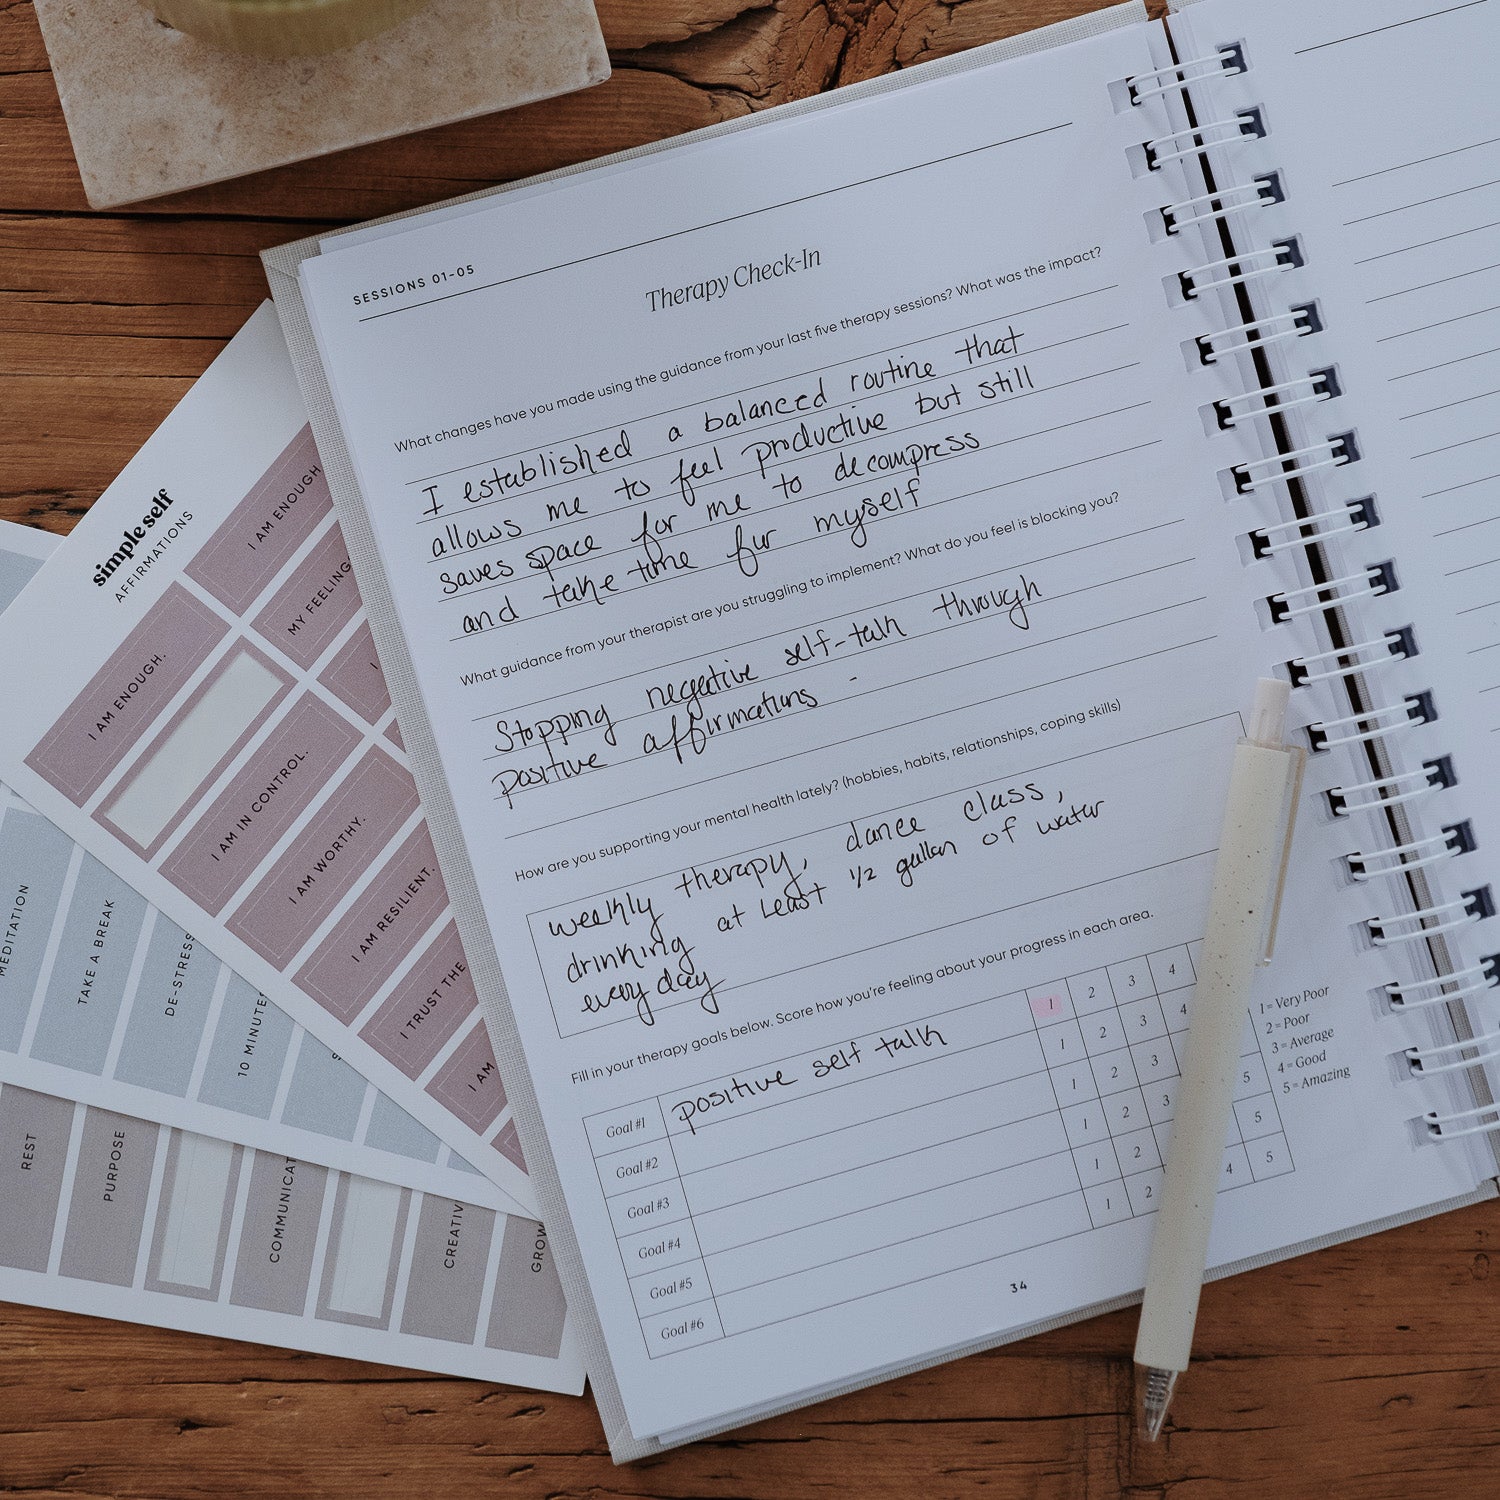 SESSIONS 01-05
Therapy Check-In
What changes have you made using the guidance from your last five therapy sessions? What was the impact?
I established a balanced routine that
allows me to feel productive but still
saves space for me to decompress
and take time for myself
What guidance from your therapist are you struggling to implement? What do you feel is blocking you?
Stopping negative self-talk through
positive affirmations -
How are you supporting your mental health lately? (hobbies, habits, relationships, coping skills)
weekly therapy, dance class,
drinking at least 1/2 gallon of water
every day
Fill in your therapy goals below. Score how you're feeling about your progress in each area.
Goal #1 positive self talk 1 2 3 4
Goal #2 1 2 3 4
Goal #3 1 2 3 5
Goal #4 1 2 3 5
Goal #5 1 2 4 5
Goal #6 1 2
1 = Very Poor
2 = Poor
3 = Average
4 = Good
5 = Amazing
34
simple self
AFFIRMATIONS
I AM ENOUGH
MY FEELING
I
I AM ENOUGH.
I AM IN CONTROL.
I AM WORTHY.
I AM RESILIENT.
I TRUST THE
I AM
MEDITATION
TAKE A BREAK
DE-STRESS
10 MINUTE
REST
PURPOSE
COMMUNICAT
CREATIV
GROW